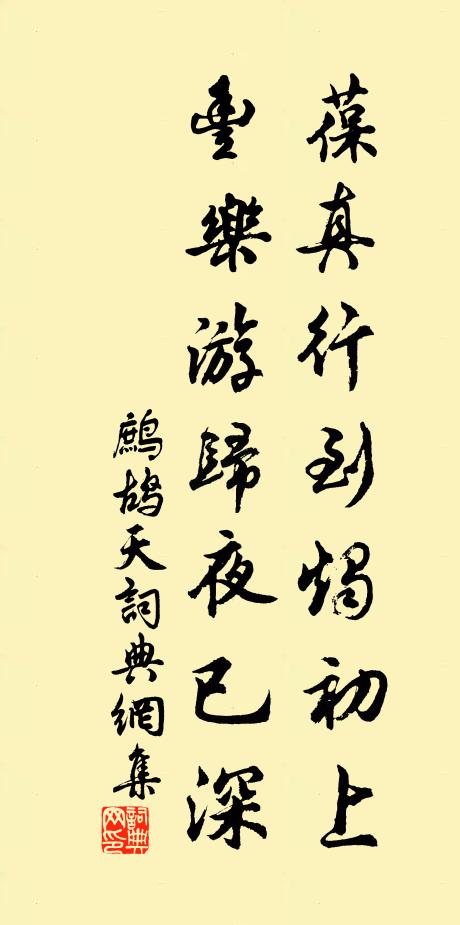 葆真行到燭初上
豐樂游歸夜已深
鷓鴣天詞典網集
詞典网印